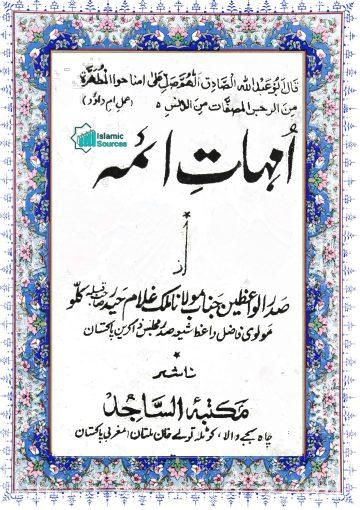 قال ابو عبد الله الصادق اللهم صل على امنا حوا المطهرة
من الرجس المصفات من الانس ٥
(عمل ام داؤد)
Islamic
Sources
اُمہاتِ ائمہ
*
از
صدر الواعظین جناب مولانا ملک غلام حیدر کلو
مولوی فاضل واعظ شیعہ صدر مجلس ذاکرین پاکستان
*
ناشر
مکتبۃ الساجد
چاہ بمبے والا، کوٹلہ تولے خان ملتان (مغربی پاکستان